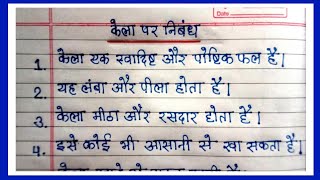 केला पर निबंध
1. केला एक स्वादिष्ट और पोष्टिक फल है।
2. यह लंबा और पीला होता है।
3. केला मीठा और रसदार होता है।
4. इसे कोई भी आसानी से खा सकता है।